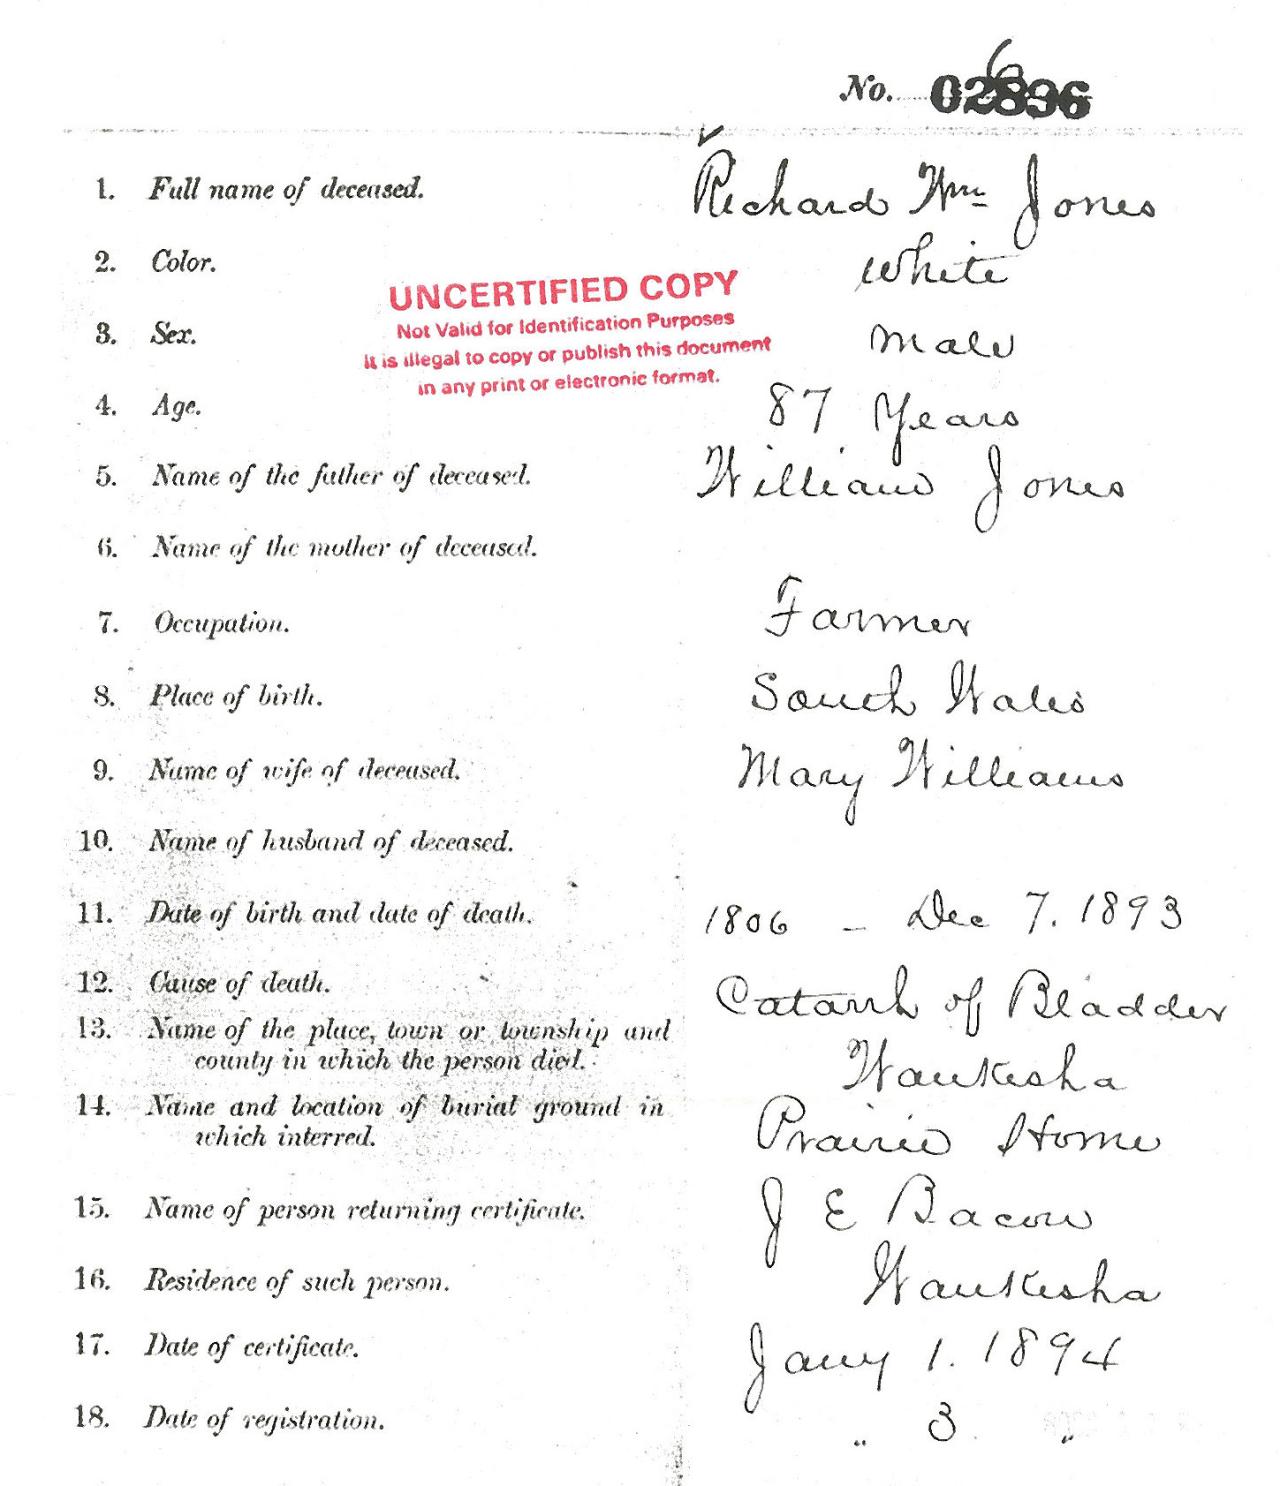 No. 02896
6
1. Full name of deceased. Richard Wm Jones
2. Color. White
UNCERTIFIED COPY
Not Valid for Identification Purposes
It is illegal to copy or publish this document
in any print or electronic format.
3. Sex. Male
4. Age. 87 Years
5. Name of the father of deceased. William Jones
6. Name of the mother of deceased.
7. Occupation. Farmer
8. Place of birth. South Wales
9. Name of wife of deceased. Mary Williams
10. Name of husband of deceased.
11. Date of birth and date of death. 1806 - Dec 7. 1893
12. Cause of death. Catarrh of Bladder
13. Name of the place, town or township and
county in which the person died. Waukesha
14. Name and location of burial ground in
which interred. Prairie Home
15. Name of person returning certificate. J E Bacon
16. Residence of such person. Waukesha
17. Date of certificate. Jany 1. 1894
18. Date of registration. " 3 "